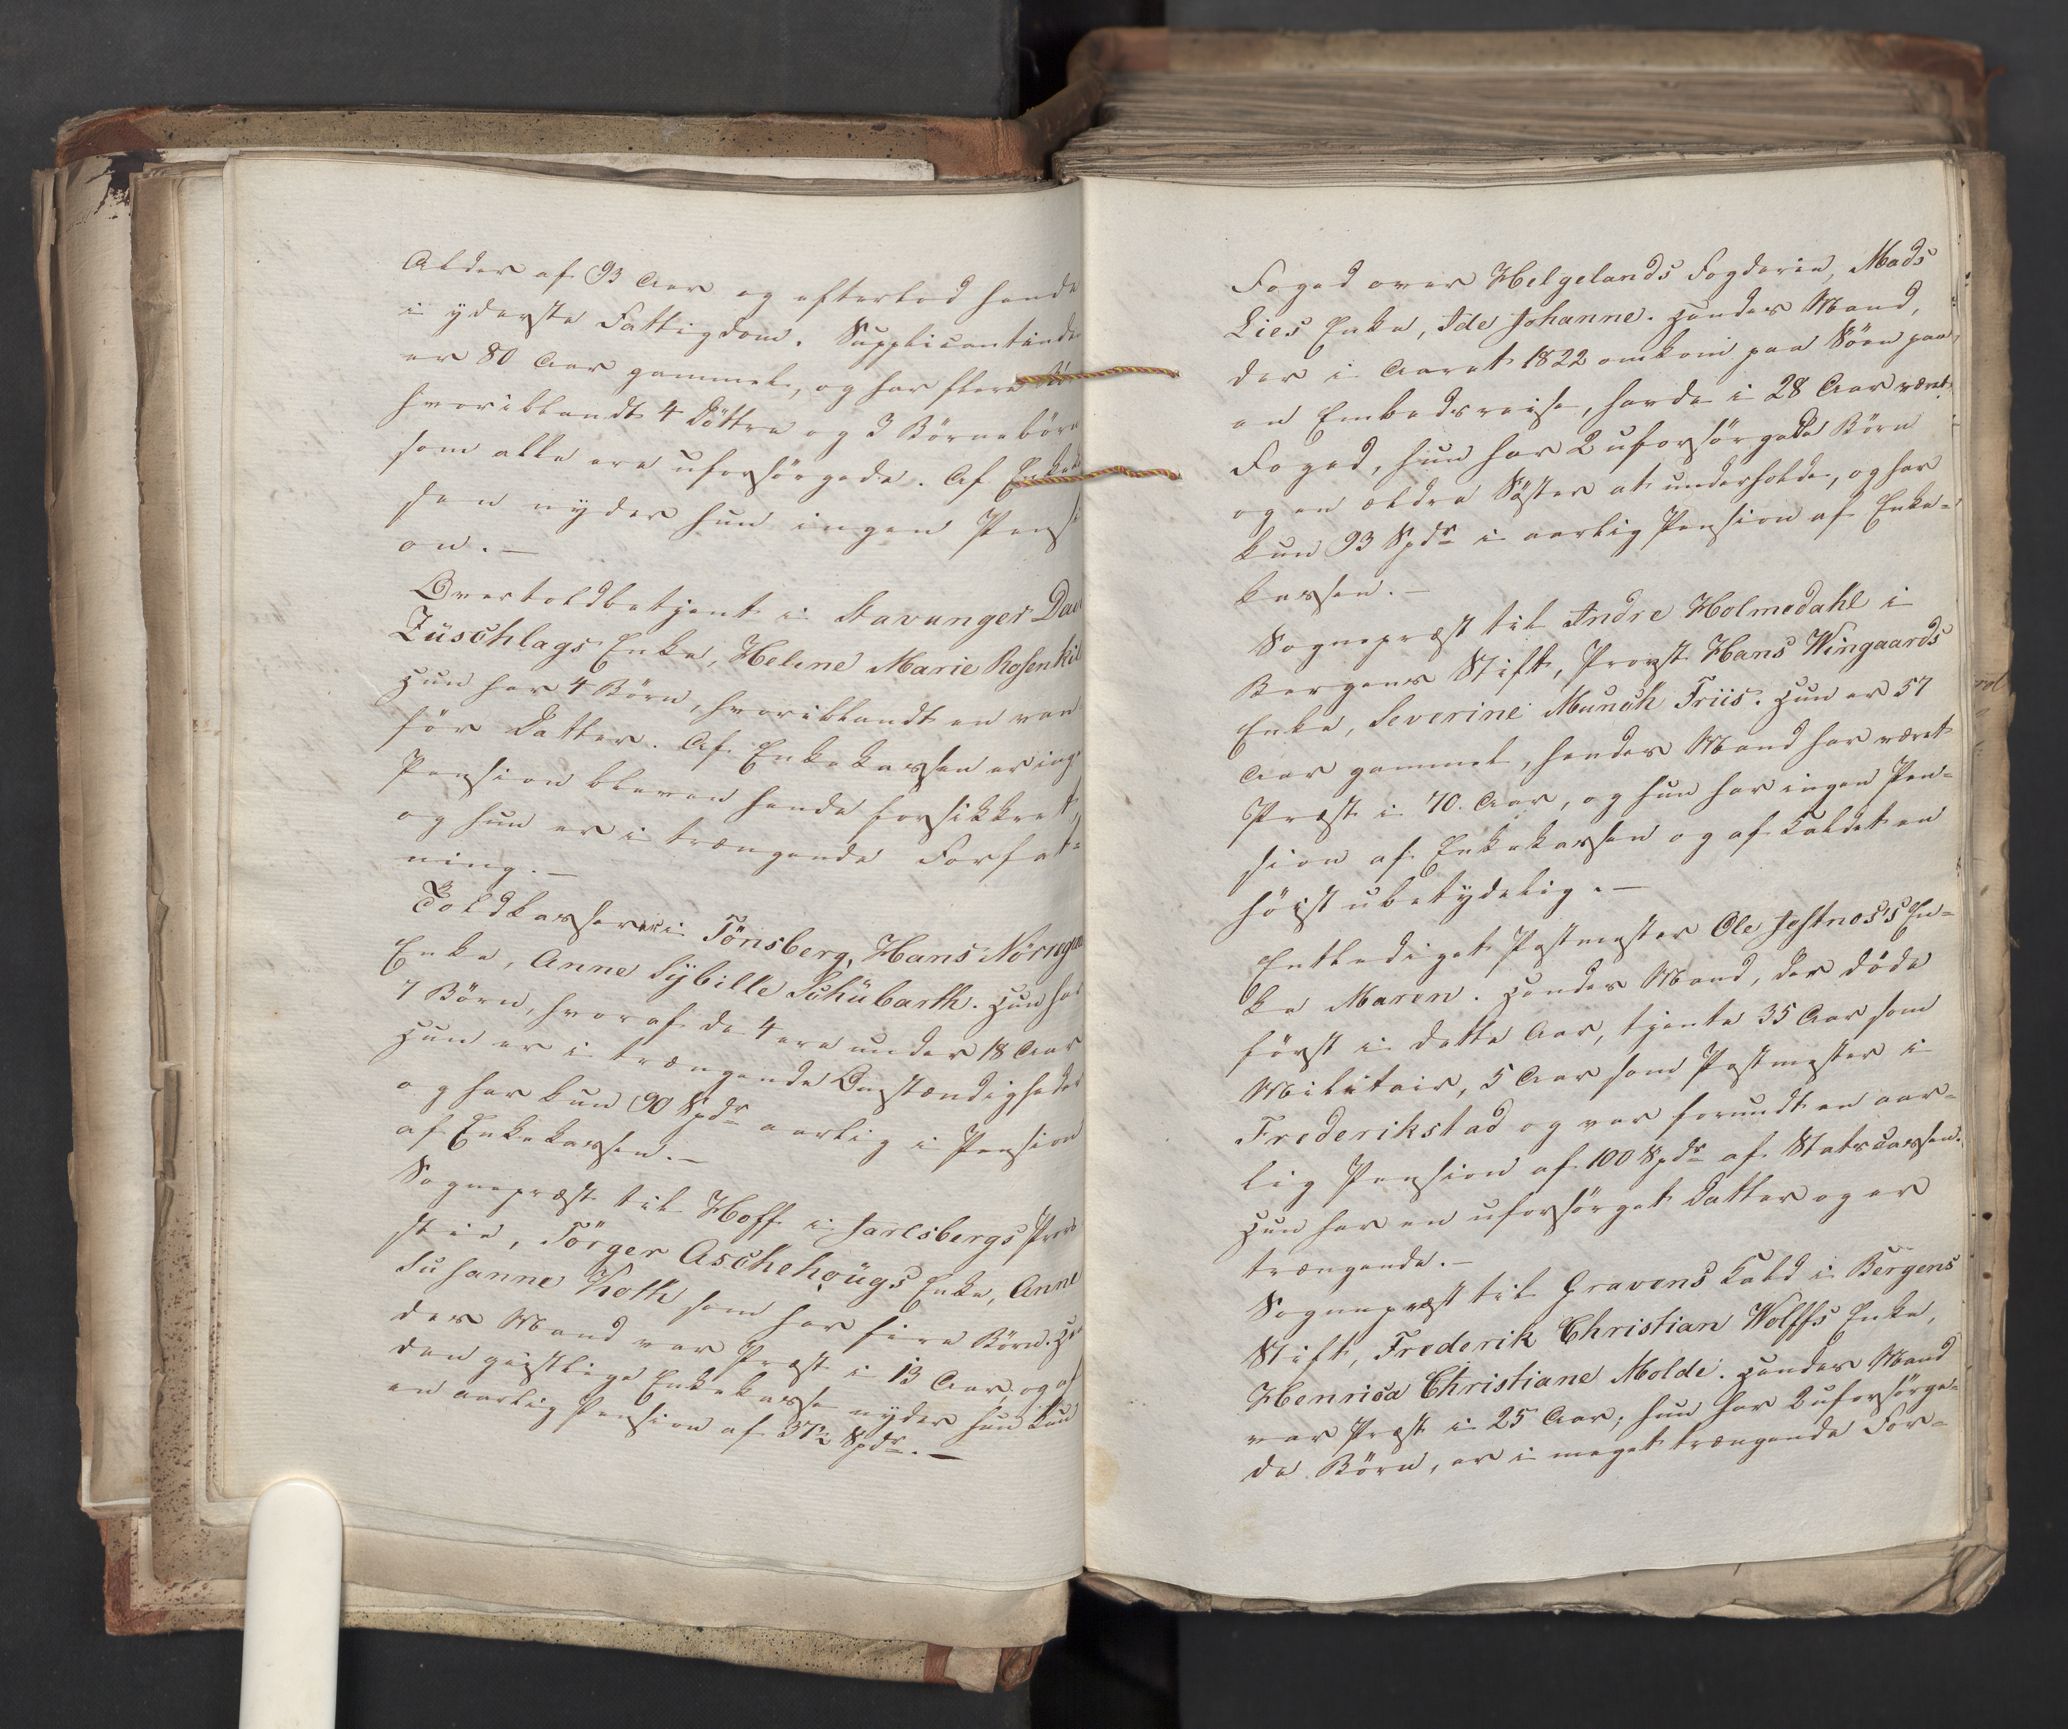 Alder af 93 Aar og efterlod hende
i yderste Fattigdom. Supplicantinden
er 80 Aar gammel, og har flere
hvoriblandt 4 Döttre og 3 Börnebörn
som alle ere uforsörgede. Af Enkekas
sen nyder hun ingen Pensi
on.—
Overtoldbetjent i Stavanger
Züschlags Enke, Helene Marie Rosenkil
Hun har 4 Börn, hvoriblandt en van
för Datter. Af Enkekassen er ing
Pension bleven hende forsikkret,
og hun er i trængende Forfat-
ning.—
Toldkasserer i Tönsberg, Hans Nörregaa
Enke, Anne Sÿbille Schübarth. Hun har
7 Börn, hvoraf de 4 ere under 18 Aar
Hun er i trængende Omstændigheder
og har kun 90 Spdr aarlig i Pension
af Enkekassen.—
Sognepræst til Hoff i Jarlsbergs Prov
stie, Törger Aschehoügs Enke, Anne
Susanne Koth som har fire Börn. Hen
des Mand var Præst i 13 Aar, og af
den geistlige Enkekasse nyder hun kun
en aarlig Pension af 37½ Spdr.—
Foged over Helgelands Fogderie, Mads
Lies Enke, Ide Johanne. Hendes Mand,
der i Aaret 1822 omkom paa Söen paa
en Embedsreise, havde i 28 Aar været
Foged, hun har 2 uforsörgede Börn
og en ældre Söster at underholde, og har
kun 93 Spdr i aarlig Pension af Enke-
kassen.—
Sognepræst til Indre Holmedahl i
Bergens Stift, Provst Hans Wingaards
Enke, Severine Munch Friis. Hun er 57
Aar gammel, hendes Mand har været
Præst i 40 Aar, og hun har ingen Pen-
sion af Enkekassen og af Kaldet en
höist ubetydelig.—
Entlediget Postmester Ole Jestnos's En-
ke Maren. Hendes Mand, der döde
först i dette Aar, tjente 35 Aar som
Militair, 5 Aar som Postmester i
Frederikstad og var forundt en aar-
lig Pension af 100 Spdr af Statscassen.
Hun har en uforsörget Datter og er
trængende.—
Sognepræst til Gravens Kald i Bergens
Stift, Frederik Christian Wolffs Enke,
Henrica Christiane Molde. Hendes Mand
var Præst i 25 Aar; hun har 2 uforsörge-
de Börn, er i meget trængende For-